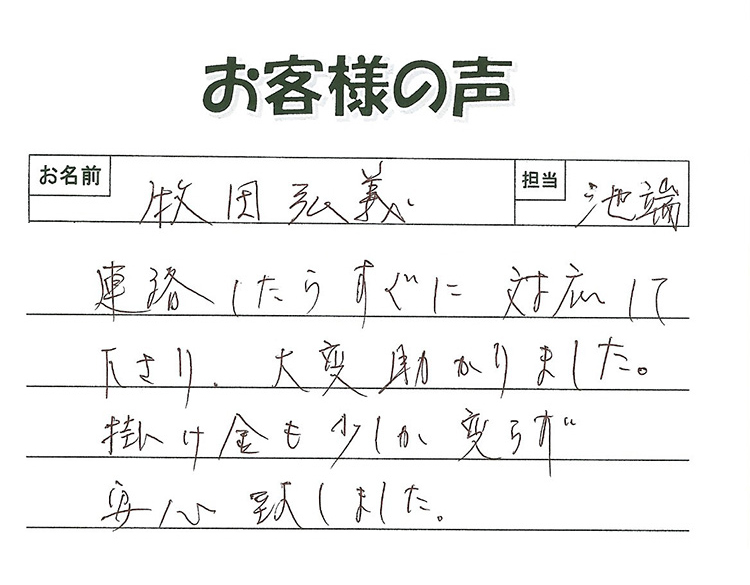 お客様の声
お名前 牧田弘義 担当 池端
連絡したらすぐに対応して
下さり、大変助かりました。
掛け金も少しか変らず
安心致しました。